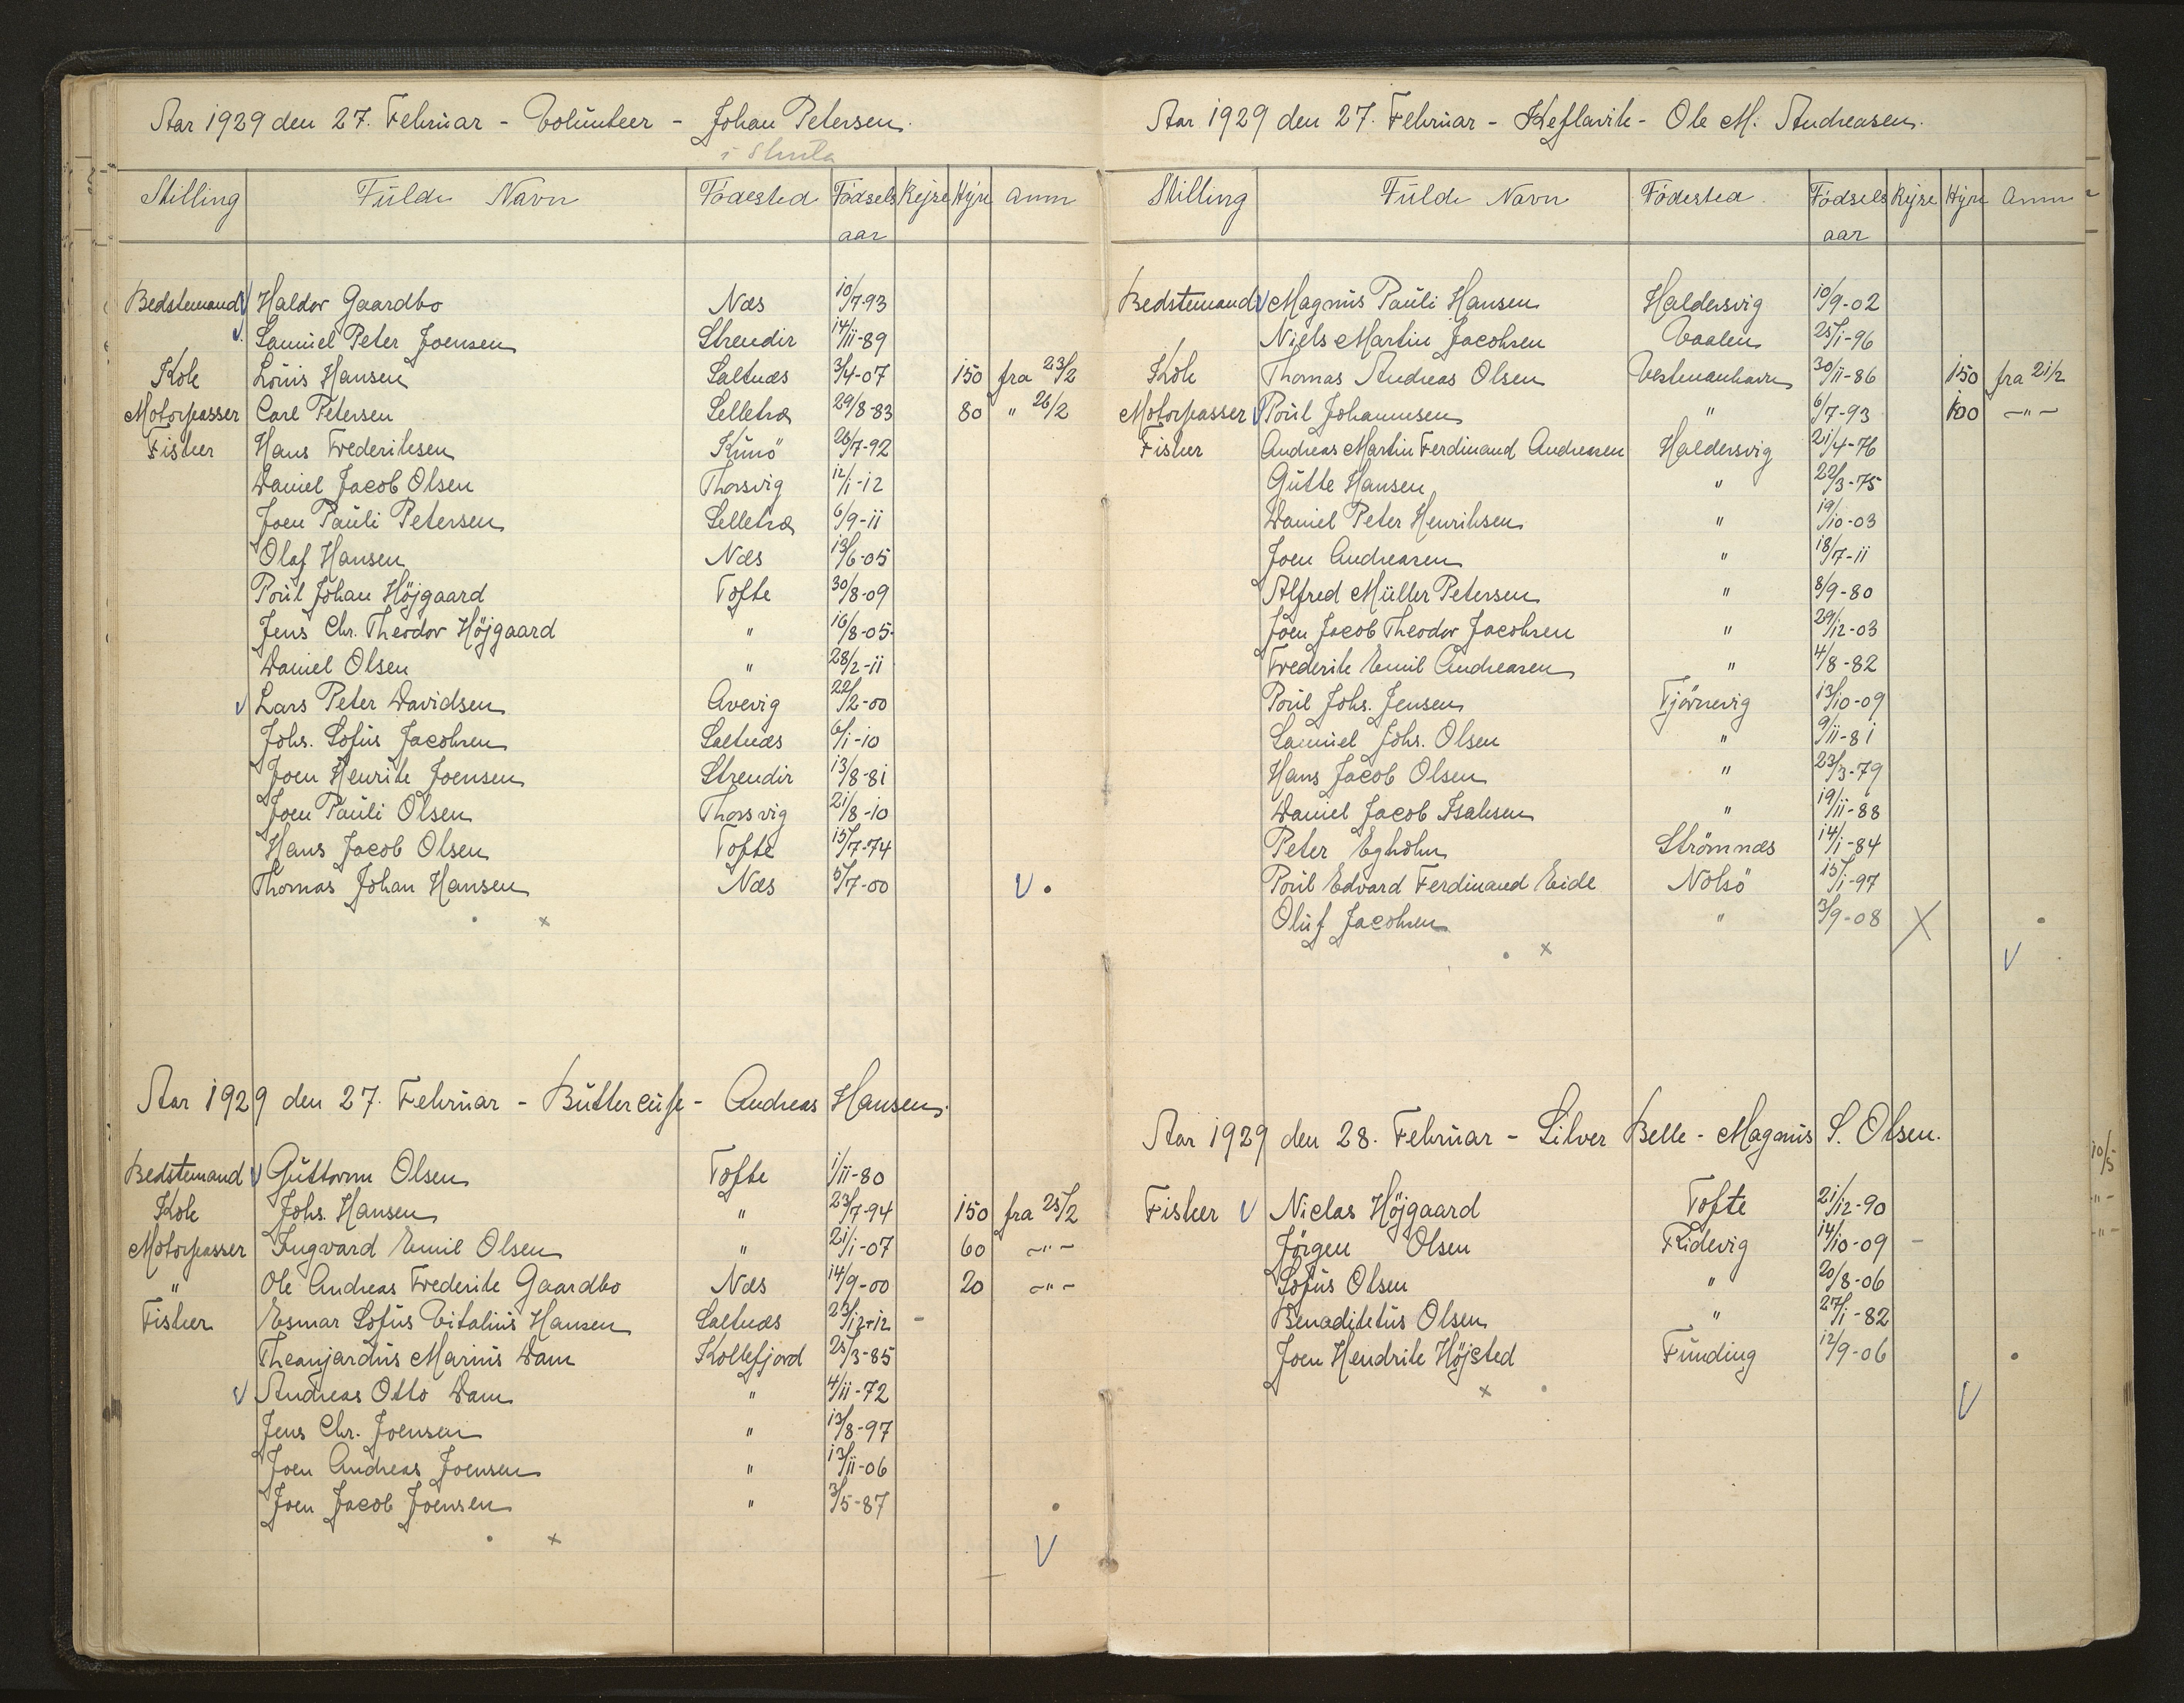 Aar 1929 den 27. Februar - Volunteer - Johan Petersen.
Stilling Fulde Navn Fødested Fødsels aar Rejse Hyre Anm
Bedstemand Haldor Gaardbo Næs 10/7-93
Samuel Peter Joensen Strendir 14/11-89
Kok Louis Hansen Saltnæs 3/4-07 150 fra 23/2
Motorpasser Carl Petersen Selletræ 29/8-83 80 " 26/2
Fisker Hans Frederiksen Kunö 26/7-92
Daniel Jacob Olsen Thorsvig 12/1-12
Joen Pauli Petersen Selletræ 6/9-11
Olaf Hansen Næs 13/6-05
Poul Johan Höjgaard Tofte 30/8-09
Jens Chr. Theodor Höjgaard " 16/8-05
Daniel Olsen " 28/2-11
Lars Peter Davidsen Avevig 22/2-00
Johs. Sofus Jacobsen Saltnæs 6/1-10
Joen Henrik Joensen Strendir 13/8-81
Joen Pauli Olsen Thorsvig 21/8-10
Hans Jacob Olsen Tofte 15/7-74
Thomas Johan Hansen Næs 5/7-00
Aar 1929 den 27. Februar - Buttercup - Andreas Hansen.
Bedstemand Guttorm Olsen Tofte 1/11-80
Kok Johs. Hansen " 23/7-94 150 fra 25/2
Motorpasser Ingvard Emil Olsen " 21/1-07 60 -"-
" Ole Andreas Frederik Gaardbo Næs 14/9-00 20 -"-
Fisker Esmar Sofus Vitalius Hansen Saltnæs 23/12-12 -
Theanjardus Marius Dam Kollefjord 25/3-85
Andreas Otto Dam " 4/11-72
Jens Chr. Joensen " 13/8-97
Joen Andreas Joensen " 13/11-06
Joen Jacob Joensen " 3/5-87
Aar 1929 den 27. Februar - Keflavik - Ole M. Andreasen.
Stilling Fulde Navn Fødested Fødsels aar Rejse Hyre Anm
Bedstemand Magnus Pauli Hansen Haldersvig 10/9-02
Niels Martin Jacobsen Vaalen 25/1-96
Kok Thomas Andreas Olsen Vestmanhavn 30/11-86 150 fra 21/2
Motorpasser Poul Johannesen " 6/7-93 100 -"-
Fisker Andreas Martin Ferdinand Andreasen Haldersvig 21/4-76
Gutte Hansen " 22/3-75
Daniel Peter Henriksen " 19/10-03
Joen Andreasen " 18/7-11
Alfred Müller Petersen " 8/9-80
Joen Jacob Theodor Jacobsen " 29/12-03
Frederik Emil Andreasen " 4/8-82
Poul Johs. Jensen Tjörnevig 13/10-09
Samuel Johs. Olsen " 9/11-81
Hans Jacob Olsen " 23/3-79
Daniel Jacob Isaksen " 19/11-88
Peter Egholm Strömnæs 14/1-84
Poul Edvard Ferdinand Eide Nolsö 15/1-97
Oluf Jacobsen " 3/9-08
Aar 1929 den 28. Februar - Silver Belle - Magnus S. Olsen.
Fisker Niclas Höjgaard Tofte 21/12-90
Jörgen Olsen Ridevig 14/10-09 -
Sofus Olsen " 20/8-06
Benadiktus Olsen " 27/1-82
Joen Hendrik Höjsted Funding 12/9-06
10/5
-"-
-"-